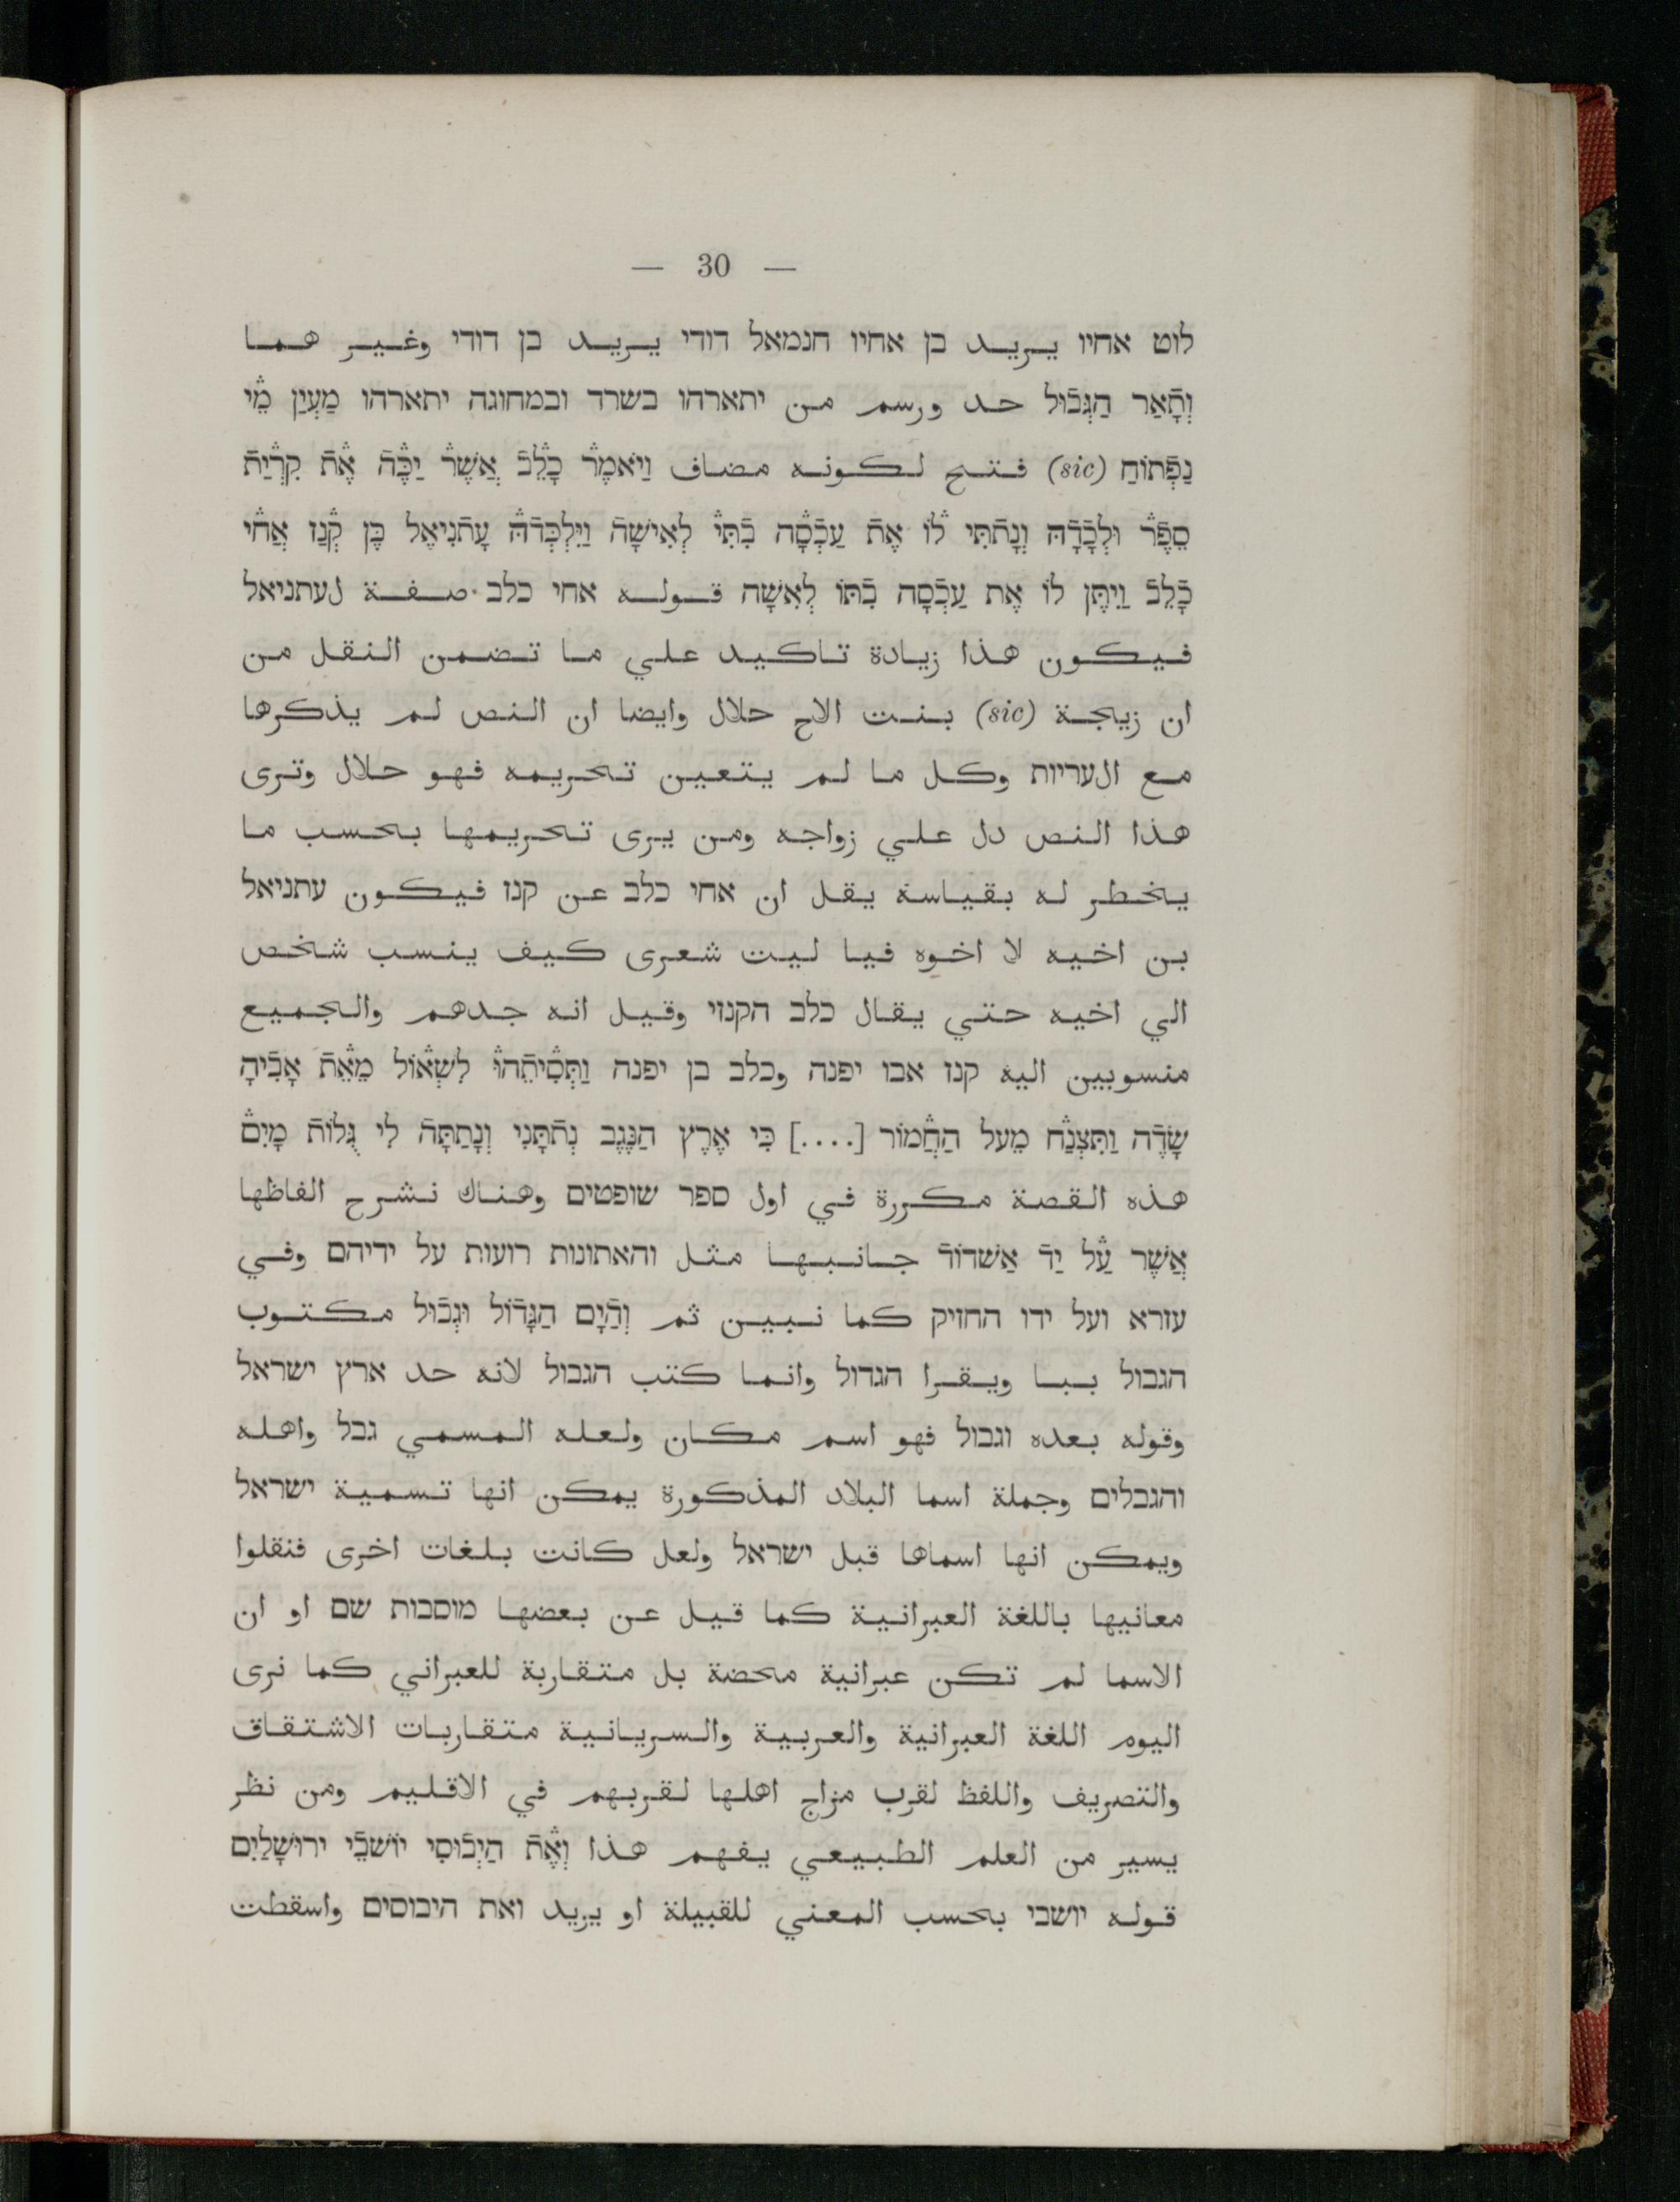 — 30 —
לוט אחיו يريد בן אחיו חנמאל דודי يريد בן דודי وغير هما
וְתָאַר הַגְּבוּל حد ورسم من יתארהו בשרד ובמחוגה יתארהו מַעְיַן מֵי
נַפְתּוֹחַ (sic) فتح لكونه مضاف וַיֹּאמֶר כָּלֵב אֲשֶׁר יַכֶּה אֶת קִרְיַת
סֵפֶר וּלְכָדָהּ וְנָתַתִּי לוֹ אֶת עַכְסָה בִתִּי לְאִישָׁה וַיִּלְכְּדָהּ עָתְנִיאֶל בֶּן קְנַז אֲחִי
כָּלֵב וַיִּתֶּן לוֹ אֶת עַכְסָה בִתּוֹ לְאִשָּׁה قوله אחי כלב صفة لעתניאל
فيكون هذا زيادة تاكيد علي ما تضمن النقل من
ان زيجة (sic) بنت الاخ حلال وايضا ان النص لم يذكرها
مع الעריות وكل ما لم يتعين تحريمه فهو حلال وترى
هذا النص دل علي زواجه ومن يرى تحريمها بحسب ما
يخطر له بقياسة يقل ان אחי כלב عن קנז فيكون עתניאל
بن اخيه لا اخوه فيا ليت شعرى كيف ينسب شخص
الي اخيه حتي يقال כלב הקנזי وقيل انه جدهم والجميع
منسوبين اليه קנז אבו יפנה وכלב בן יפנה וַתְּסִיתֵהוּ לִשְׁאוֹל מֵאֵת אָבִיהָ
שָׂדֶה וַתִּצְנַח מֵעַל הַחֲמוֹר [....] כִּי אֶרֶץ הַנֶּגֶב נְתַתָּנִי וְנָתַתָּה לִי גֻּלּוֹת מָיִם
هذه القصة مكررة في اول ספר שופטים وهناك نشرح الفاظها
אֲשֶׁר עַל יַד אַשְׁדּוֹד جانبها مثل והאתונות רועות על ידיהם وفي
עזרא ועל ידו החזיק كما نبين ثم וְהַיָּם הַגָּדוֹל וּגְבוּל مكتوب
הגבול ببا ويقرا הגדול وانما كتب הגבול لانه حد ארץ ישראל
وقوله بعده וגבול فهو اسم مكان ولعله المسمي גבל واهله
והגבלים وجملة اسما البلاد المذكورة يمكن انها تسمية ישראל
ويمكن انها اسماها قبل ישראל ولعل كانت بلغات اخرى فنقلوا
معانيها باللغة العبرانية كما قيل عن بعضها מוסבות שם او ان
الاسما لم تكن عبرانية محضة بل متقاربة للعبراني كما نرى
اليوم اللغة العبرانية والعربية والسريانية متقاربات الاشتقاق
والتصريف واللفظ لقرب مزاج اهلها لقربهم في الاقليم ومن نظر
يسير من العلم الطبيعي يفهم هذا וְאֶת הַיְבוּסִי יוֹשְׁבֵי ירוּשָׁלַיִם
قوله יושבי بحسب المعني للقبيلة او يريد ואת היבוסים واسقطت